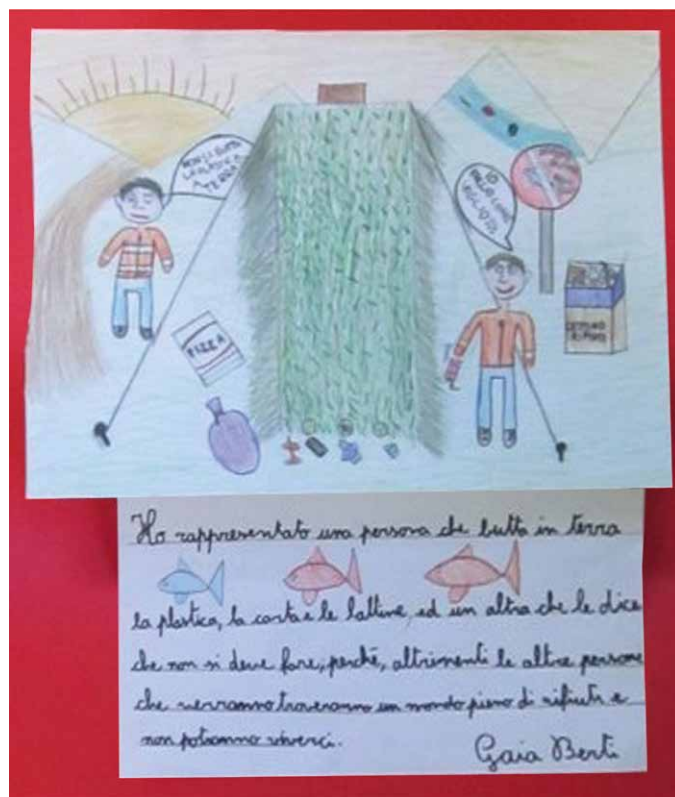 NON SI BUTTA
LA PLASTICA
A TERRA!
IO
PIZZA
Ho rappresentato una persona che butta in terra
la plastica, la carta e le lattine, ed un altra che le dice
che non si deve fare, perché, altrimenti le altre persone
che verranno troveranno un mondo pieno di rifiuti e
non potranno viverci.
Gaia Berti